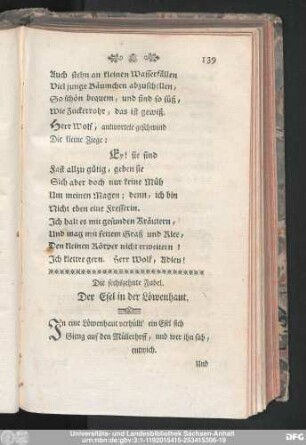 139
Auch stehn an kleinen Wasserfällen
Viel junge Bäumchen abzuschälen,
So schön bequem, und sind so süß,
Wie Zuckerrohr, das ist gewiß.
Herr Wolf, antwortete geschwind
Die kleine Ziege:
Ey! sie sind
Fast allzu gütig, geben sie
Sich aber doch nur keine Müh
Um meinen Magen; denn, ich bin
Nicht eben eine Fresserin.
Ich halt es mit gesunden Kräutern,
Und mag mit fettem Graß und Klee,
Den kleinen Körper nicht erweitern!
Ich klettre gern. Herr Wolf, Adieu!
Die sechszehnte Fabel.
Der Esel in der Löwenhaut.
In eine Löwenhaut verhüllt' ein Esel sich
Gieng auf den Müllerhoff, und wer ihn sah,
entwich.
Und
Universitäts- und Landesbibliothek Sachsen-Anhalt
urn:nbn:de:gbv:3:1-1192015415-253415306-19
DFG